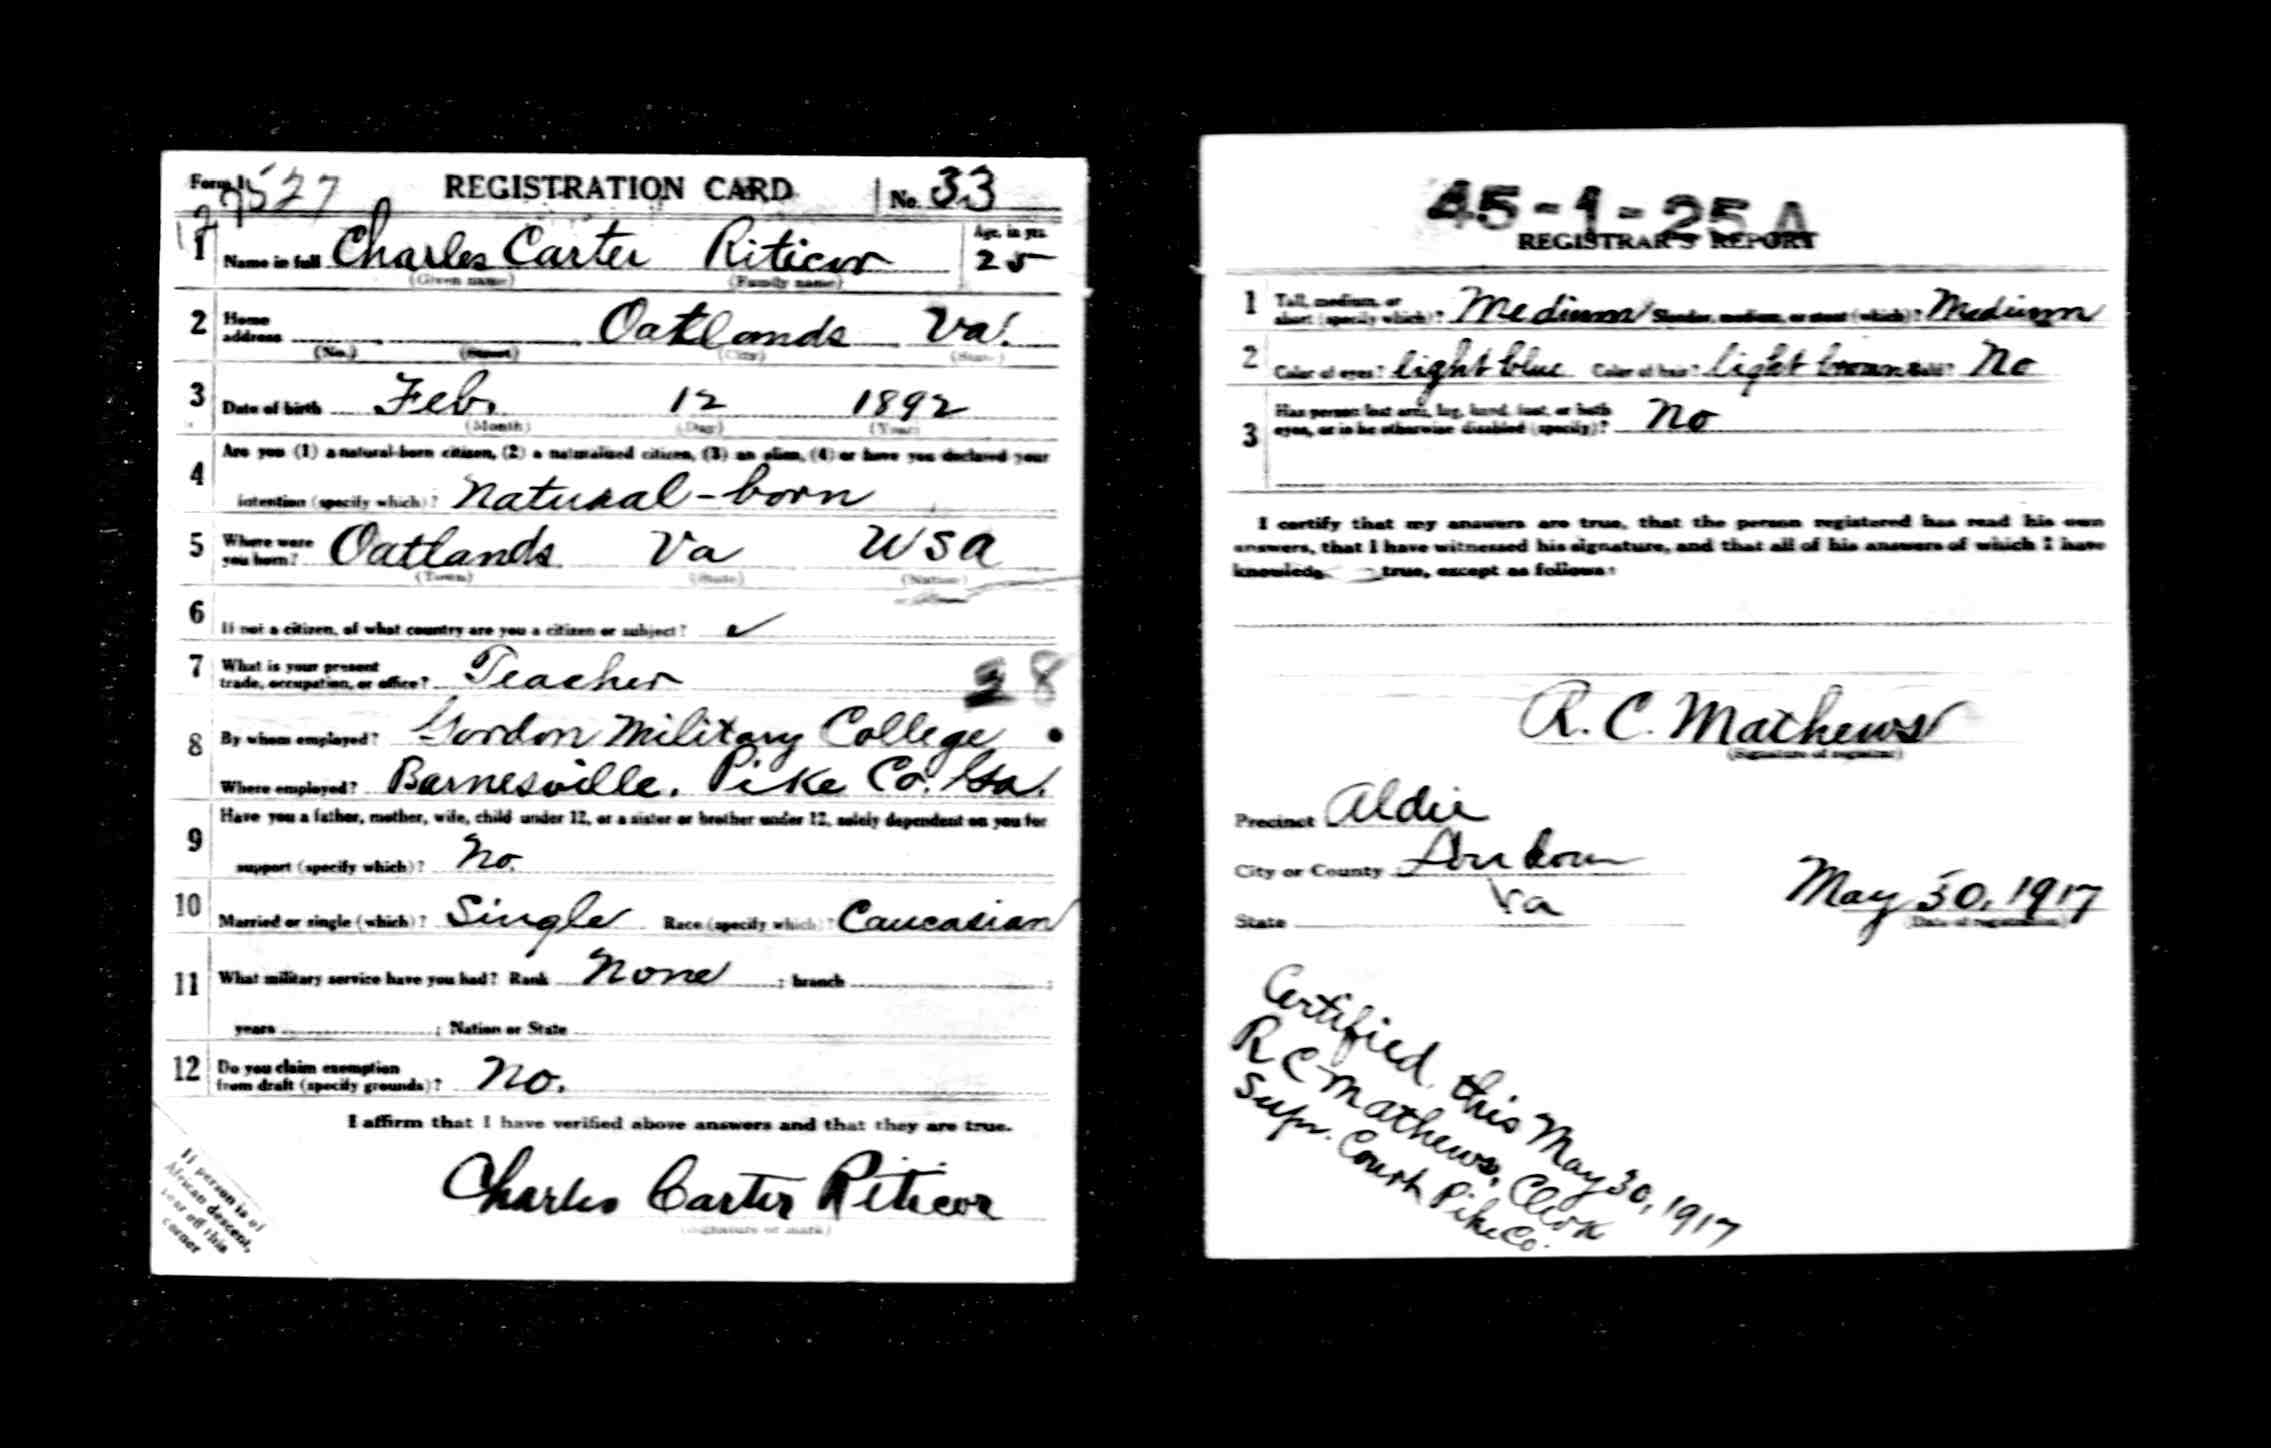 Form 1 527 REGISTRATION CARD No. 33
1 Name in full Charles Carter Riticor Age, in yrs. 25
(Given name) (Family name)
2 Home address Oatlands Va.
(No.) (Street) (City) (State)
3 Date of birth Feb. 12 1892
(Month) (Day) (Year)
4 Are you (1) a natural-born citizen, (2) a naturalized citizen, (3) an alien, (4) or have you declared your
intention (specify which)? Natural-born
5 Where were you born? Oatlands Va USA
(Town) (State) (Nation)
6 If not a citizen, of what country are you a citizen or subject? ✓
7 What is your present trade, occupation, or office? Teacher 28
8 By whom employed? Gordon Military College
Where employed? Barnesville, Pike Co. Ga.
9 Have you a father, mother, wife, child under 12, or a sister or brother under 12, solely dependent on you for
support (specify which)? No.
10 Married or single (which)? Single Race (specify which)? Caucasian
11 What military service have you had? Rank None ; branch ;
years ; Nation or State
12 Do you claim exemption from draft (specify grounds)? No.
I affirm that I have verified above answers and that they are true.
Charles Carter Riticor
(Signature or mark)
If person is of
African descent,
tear off this
corner
45-1-25 A
REGISTRAR'S REPORT
1 Tall, medium, or short (specify which)? Medium Slender, medium, or stout (which)? Medium
2 Color of eyes? light blue Color of hair? light brown Bald? No
3 Has person lost arm, leg, hand, foot, or both
eyes, or is he otherwise disabled (specify)? No
I certify that my answers are true, that the person registered has read his own
answers, that I have witnessed his signature, and that all of his answers of which I have
true, except as follows:
R. C. Mathews
(Signature of registrar)
Precinct Aldie
City or County Loudoun
State Va
May 30, 1917
(Date of registration)
Certified, this May 30, 1917
R C Mathews, Clerk
Supr. Court Pike Co.